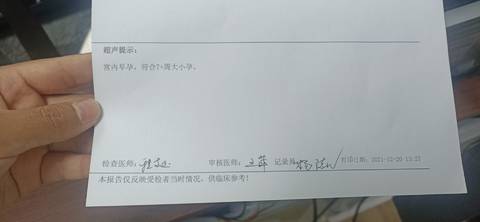 超声提示:
宫内早孕, 符合7+周大小孕。
检查医师: 审核医师: 王萍 记录员 打印日期: 2021-12-20 13:23
本报告仅反映受检者当时情况, 供临床参考!